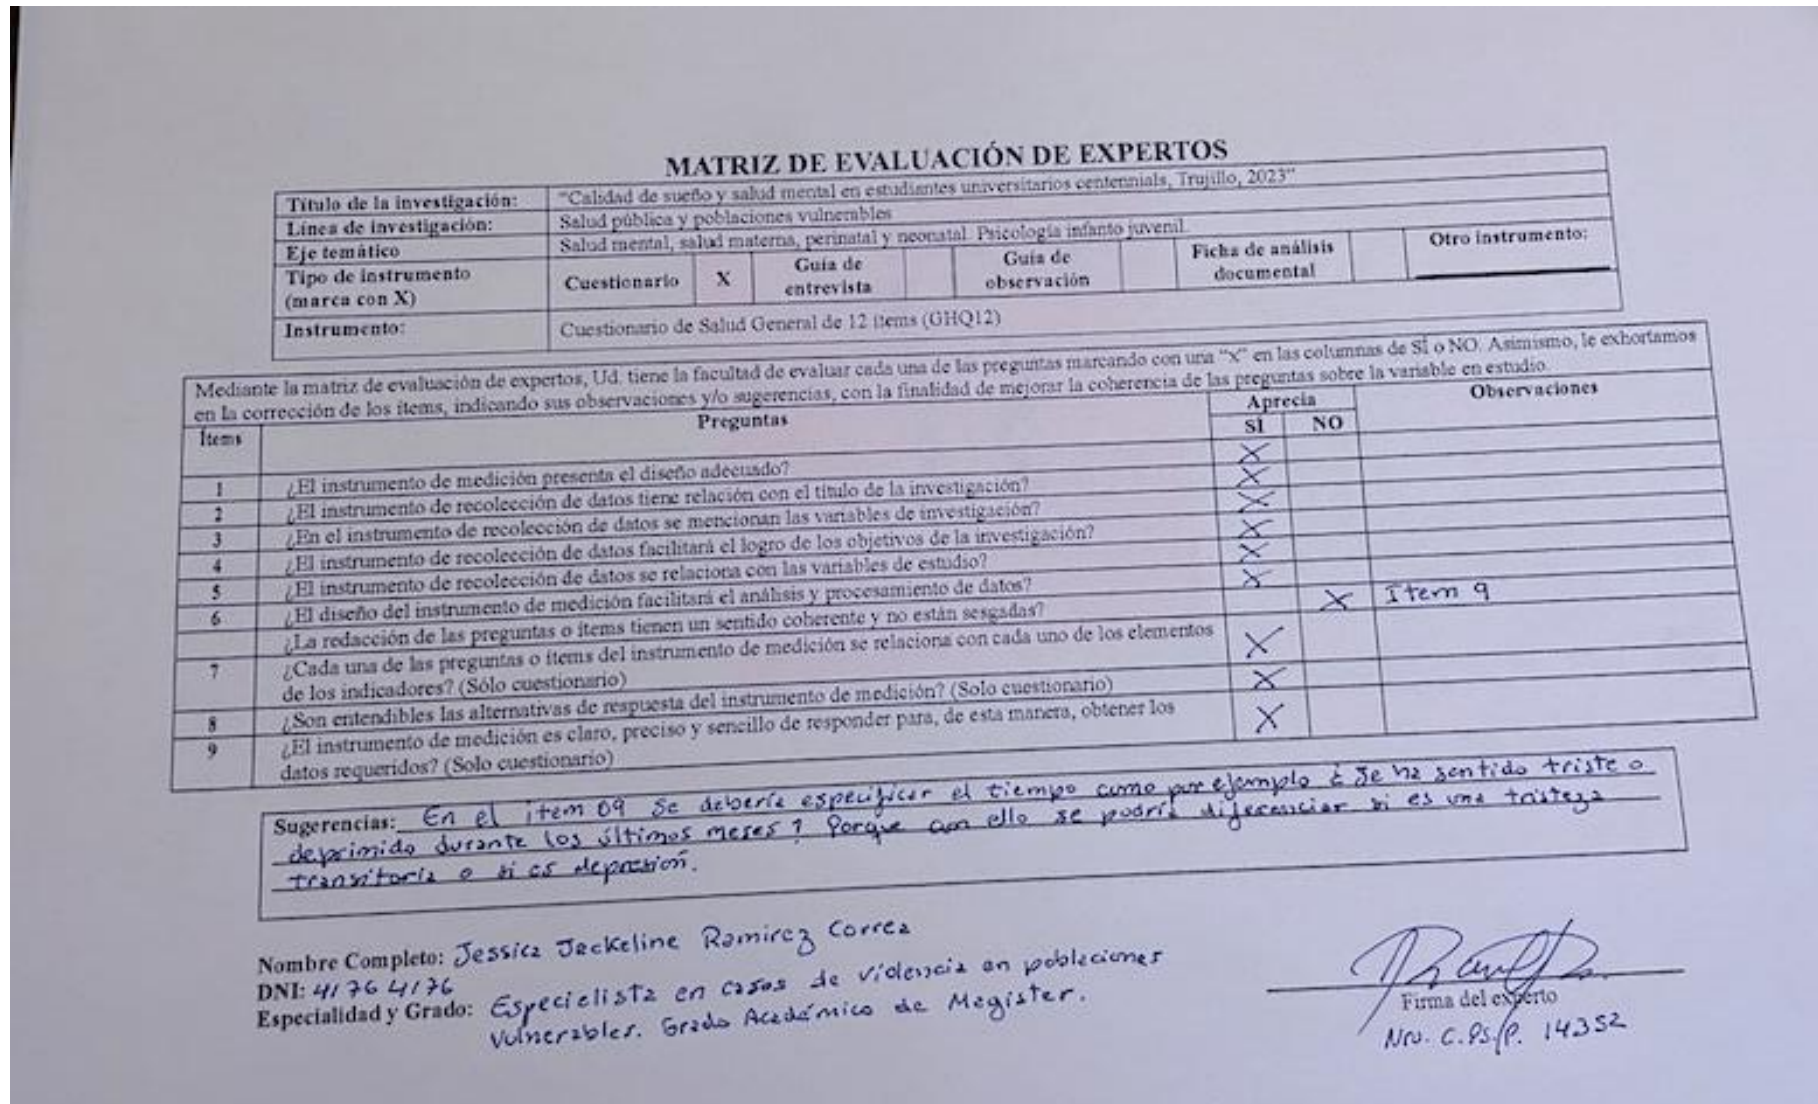 MATRIZ DE EVALUACIÓN DE EXPERTOS
Título de la investigación: "Calidad de sueño y salud mental en estudiantes universitarios centennials, Trujillo, 2023"
Línea de investigación: Salud pública y poblaciones vulnerables
Eje temático Salud mental, salud materna, perinatal y neonatal. Psicología infanto juvenil.
Tipo de instrumento (marca con X) Cuestionario X Guía de entrevista Guía de observación Ficha de análisis documental Otro instrumento:
Instrumento: Cuestionario de Salud General de 12 ítems (GHQ12)
Mediante la matriz de evaluación de expertos, Ud. tiene la facultad de evaluar cada una de las preguntas marcando con una "x" en las columnas de SÍ o NO. Asimismo, le exhortamos
en la corrección de los ítems, indicando sus observaciones y/o sugerencias, con la finalidad de mejorar la coherencia de las preguntas sobre la variable en estudio.
Ítems Preguntas Aprecia Observaciones
SÍ NO
1 ¿El instrumento de medición presenta el diseño adecuado? X
2 ¿El instrumento de recolección de datos tiene relación con el título de la investigación? X
3 ¿En el instrumento de recolección de datos se mencionan las variables de investigación? X
4 ¿El instrumento de recolección de datos facilitará el logro de los objetivos de la investigación? X
5 ¿El instrumento de recolección de datos se relaciona con las variables de estudio? X
6 ¿El diseño del instrumento de medición facilitará el análisis y procesamiento de datos? X
¿La redacción de las preguntas o ítems tienen un sentido coherente y no están sesgadas? X Item 9
7 ¿Cada una de las preguntas o ítems del instrumento de medición se relaciona con cada uno de los elementos
de los indicadores? (Sólo cuestionario) X
8 ¿Son entendibles las alternativas de respuesta del instrumento de medición? (Solo cuestionario) X
9 ¿El instrumento de medición es claro, preciso y sencillo de responder para, de esta manera, obtener los
datos requeridos? (Solo cuestionario) X
Sugerencias: En el item 09 se debería especificar el tiempo como por ejemplo ¿ Se ha sentido triste o
deprimido durante los últimos meses? Porque con ello se podría diferenciar si es una tristeza
transitoria o si es depresión.
Nombre Completo: Jessica Jackeline Ramirez Correa
DNI: 41764176
Especialidad y Grado: Especialista en casos de violencia en poblaciones
vulnerables. Grado Académico de Magister.
Firma del experto
Nro. C.Ps.P. 14352